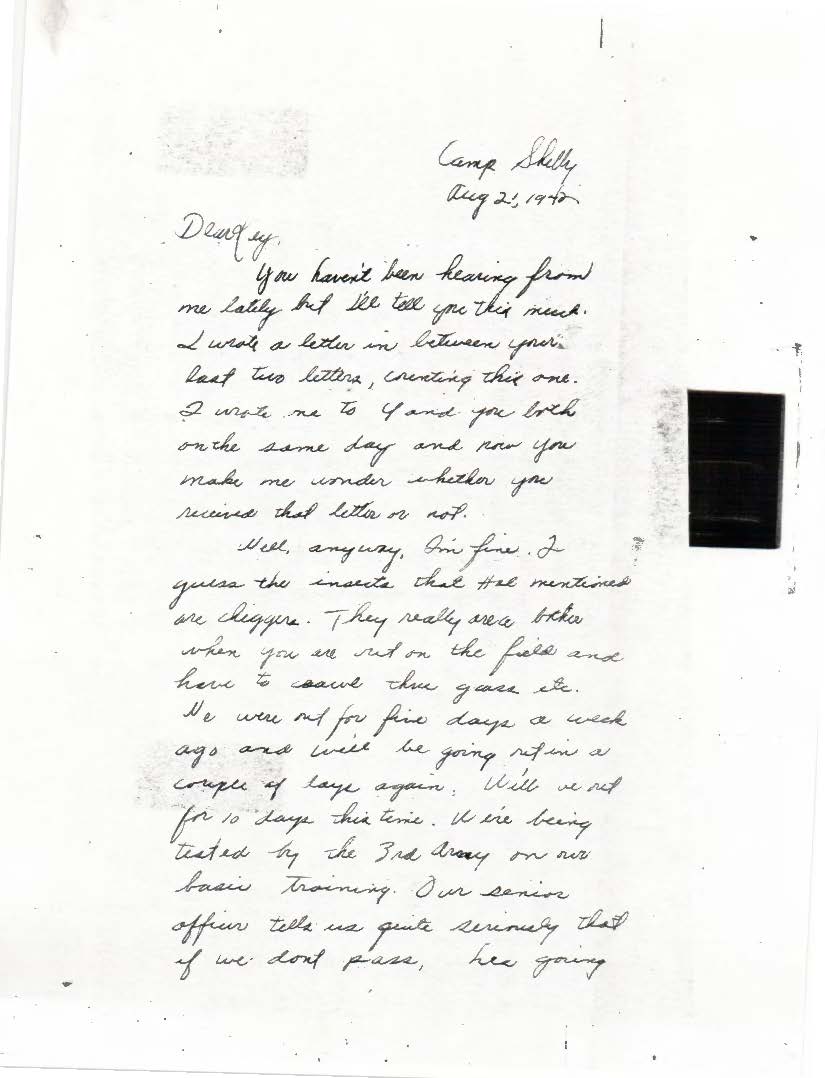 Camp Shelly
Aug 2, 1942
Dear
You haven't been hearing from
me lately but I'll tell you this much.
I wrote a letter in between your
last two letters, counting this one.
I wrote one to Y and you both
on the same day and now you
make me wonder whether you
received that letter or not.
Well, anyway, I'm fine. I
guess the insects that Hal mentioned
are chiggers. They really are a bother
when you are out on the field and
have to crawl thru grass etc.
We were out for five days a week
ago and will be going out in a
couple of days again. We'll be out
for 10 days this time. We're being
tested by the 3rd Army on our
basic training. Our senior
officer tells us quite seriously that
if we dont pass, hes going